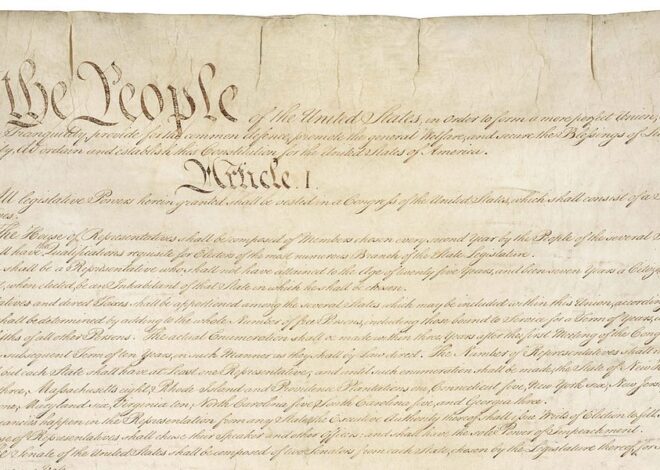 the People of the United States, in Order to form a more perfect Union,
Tranquility, provide for the common defence, promote the general Welfare, and secure the Blessings of
do ordain and establish this Constitution for the United States of America.
Article. I.
All legislative Powers herein granted shall be vested in a Congress of the United States, which shall consist of a
ves.
The House of Representatives shall be composed of Members chosen every second Year by the People of the several
ll have the Qualifications requisite for Electors of the most numerous Branch of the State Legislature.
shall be a Representative who shall not have attained to the Age of twenty five Years, and been seven Years a Citizen
t, when elected, be an Inhabitant of that State in which he shall be chosen.
atives and direct Taxes shall be apportioned among the several States which may be included within this Union, according
hall be determined by adding to the whole Number of free Persons, including those bound to Service for a Term of Years, a
fths of all other Persons. The actual Enumeration shall be made within three Years after the first Meeting of the Cong
subsequent Term of ten Years, in such Manner as they shall by Law direct. The Number of Representatives shall
but each State shall have at Least one Representative; and until such enumeration shall be made, the State of New
three, Massachusetts eight, Rhode Island and Providence Plantations one, Connecticut five, New York six, New Jers
one, Maryland six, Virginia ten, North Carolina five, South Carolina five, and Georgia three.
acancies happen in the Representation from any State, the Executive Authority thereof shall issue Writs of Election to fill
se of Representatives shall chuse their Speaker and other Officers; and shall have the sole Power of Impeachment.
Senate of the United States shall be composed of two Senators from each State, chosen by the Legislature thereof, for